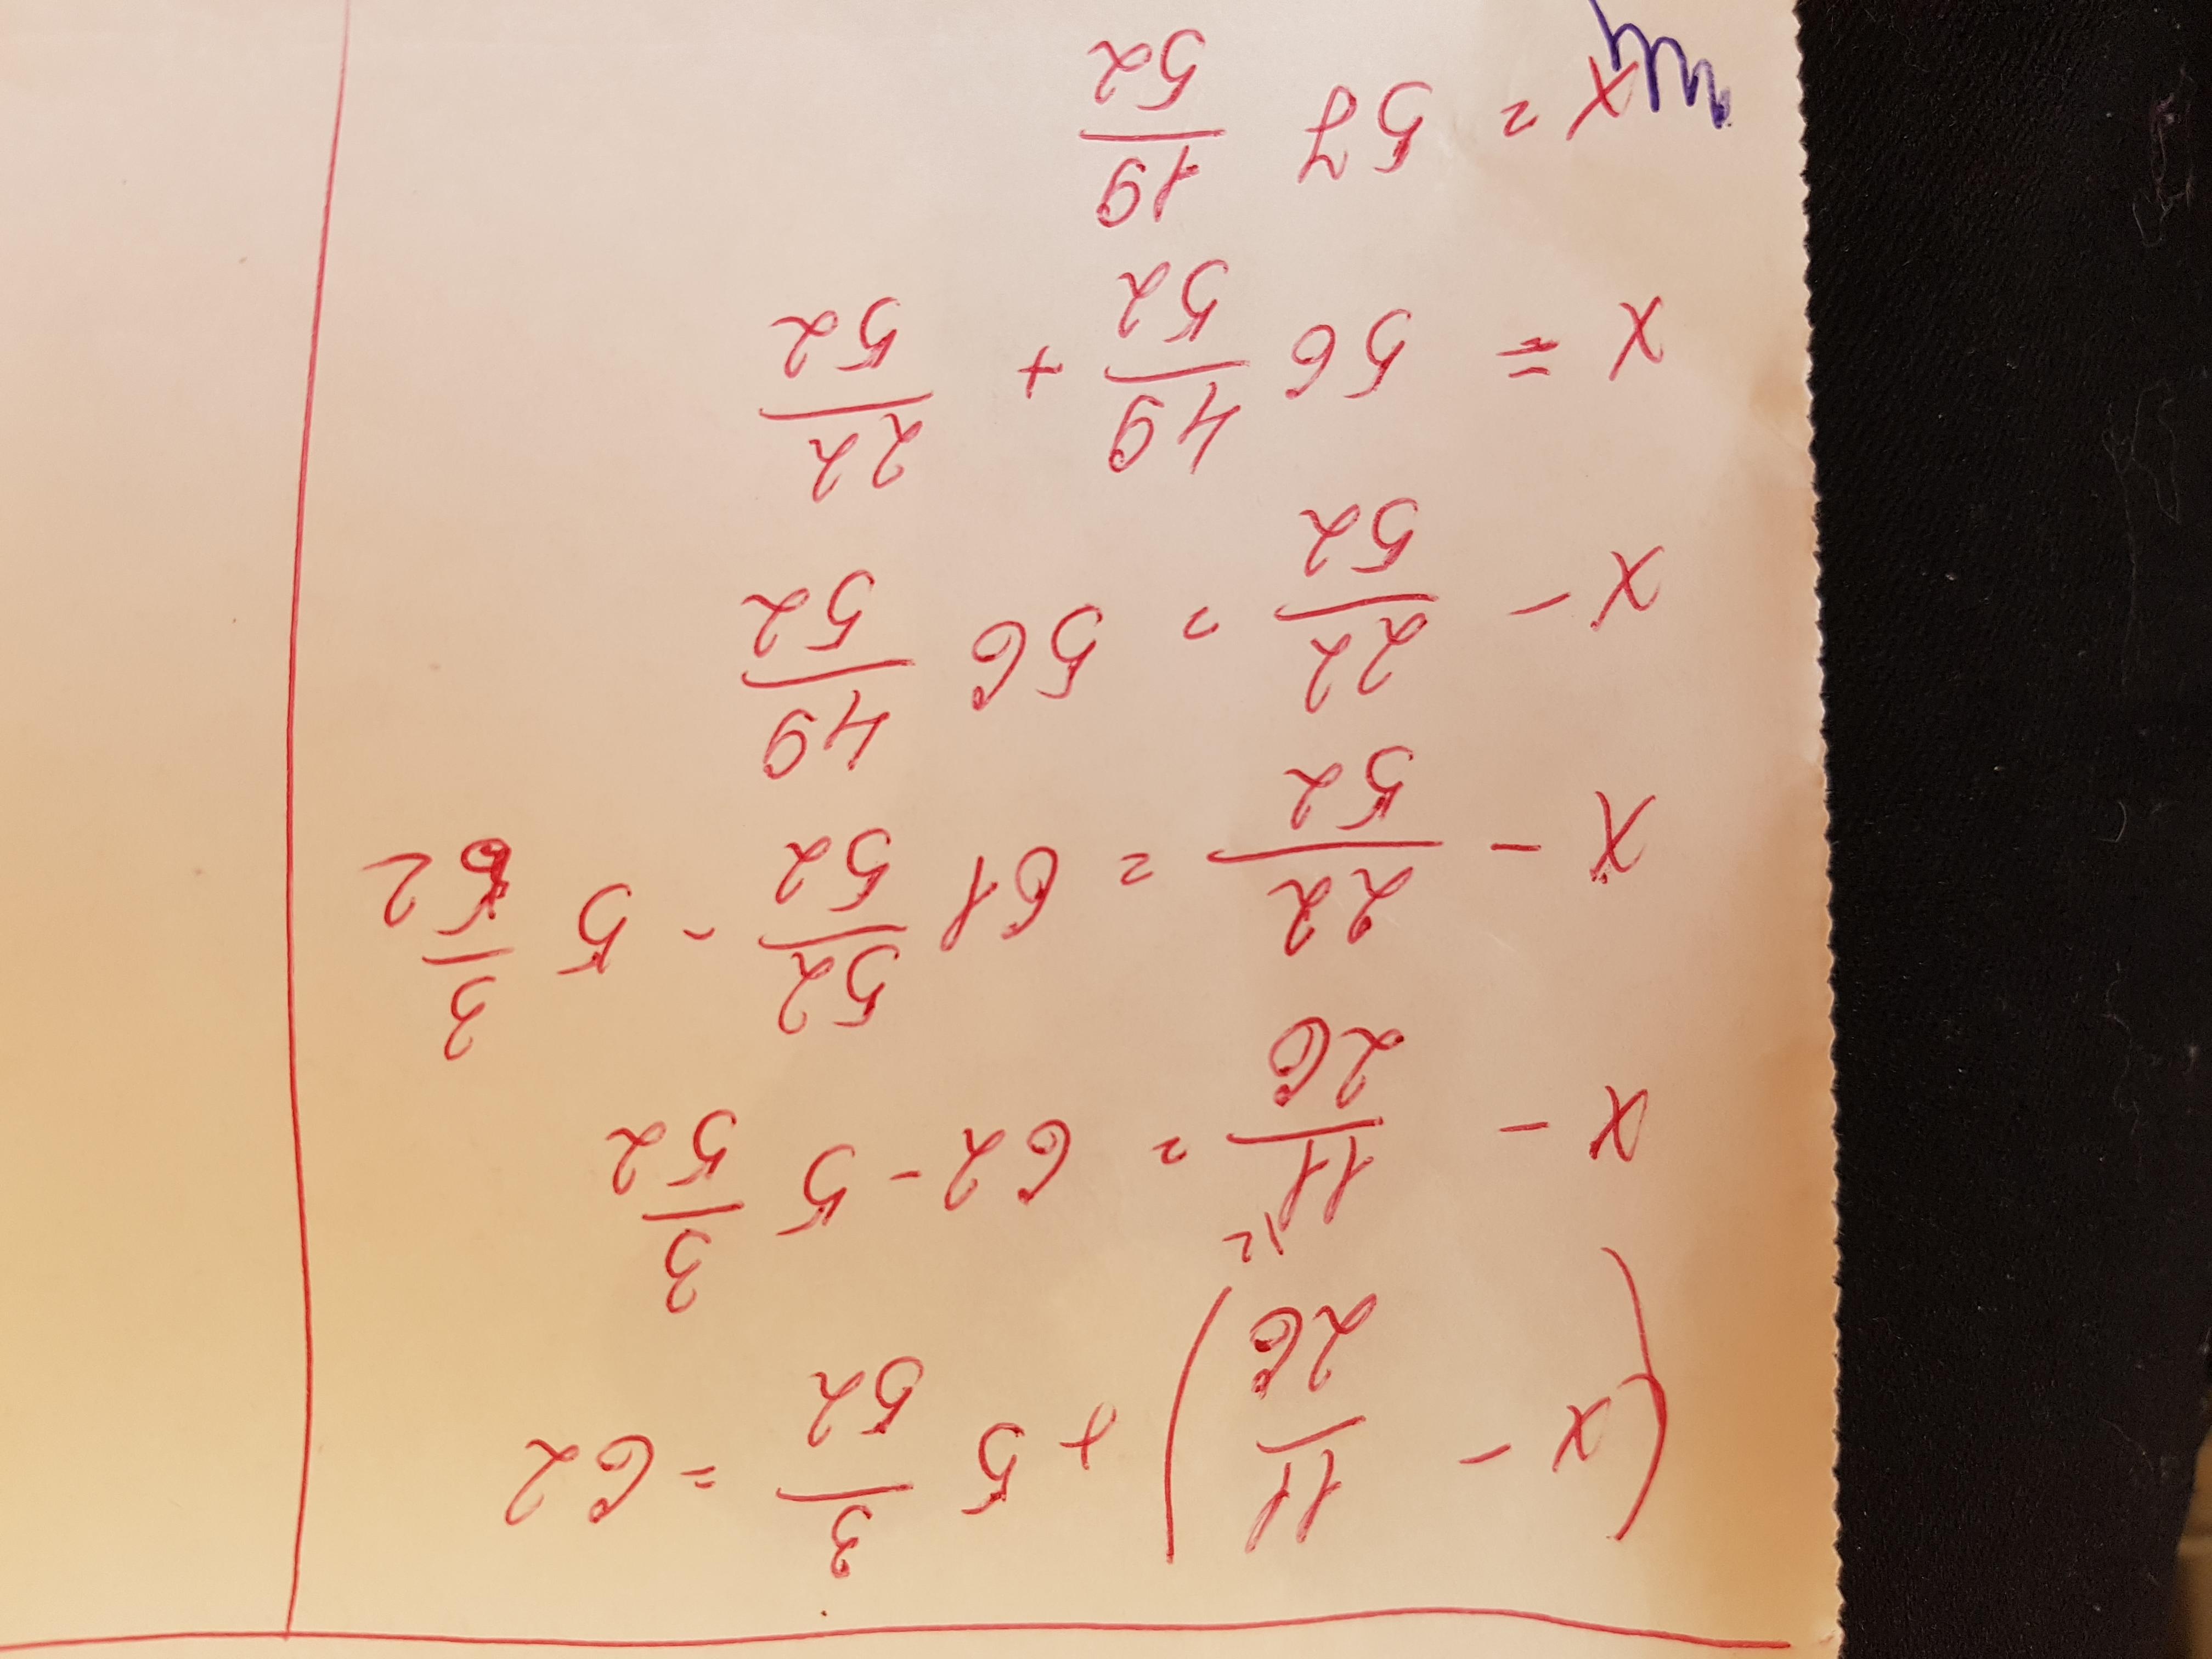 (x - 11/26) + 5 3/52 = 62
x - 11/26 \2 = 62 - 5 3/52
x - 22/52 = 61 52/52 - 5 3/52
x - 22/52 = 56 49/52
x = 56 49/52 + 22/52
x = 57 19/52